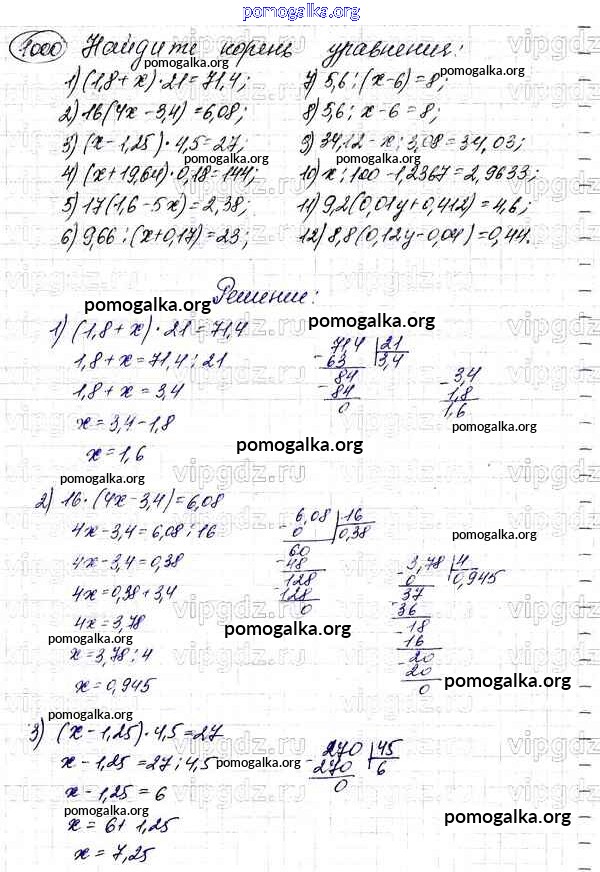 pomogalka.org
1000 Найдите корень уравнения:
1) (1,8 + x) · 21 = 71,4;
2) 16(4x - 3,4) = 6,08;
3) (x - 1,25) · 4,5 = 27;
4) (x + 19,64) · 0,18 = 144;
5) 17(1,6 - 5x) = 2,38;
6) 9,66 : (x + 0,17) = 23;
7) 5,6 : (x - 6) = 8;
8) 5,6 : x - 6 = 8;
9) 34,12 - x : 3,08 = 34,03;
10) x : 100 - 1,2367 = 2,9633;
11) 9,2(0,01y + 0,412) = 4,6;
12) 8,8(0,12y - 0,04) = 0,44.
Решение:
1) (1,8 + x) · 21 = 71,4
1,8 + x = 71,4 : 21
1,8 + x = 3,4
x = 3,4 - 1,8
x = 1,6
71,4 21
- 63 3,4
84
- 84
0
- 3,4
1,8
1,6
2) 16 · (4x - 3,4) = 6,08
4x - 3,4 = 6,08 : 16
4x - 3,4 = 0,38
4x = 0,38 + 3,4
4x = 3,78
x = 3,78 : 4
x = 0,945
- 6,08 16
0 0,38
60
- 48
128
- 128
0
- 3,78 4
0 0,945
37
- 36
18
- 16
20
- 20
0
3) (x - 1,25) · 4,5 = 27
x - 1,25 = 27 : 4,5
x - 1,25 = 6
x = 6 + 1,25
x = 7,25
- 270 45
270 6
0
pomogalka.org
vipgdz.ru